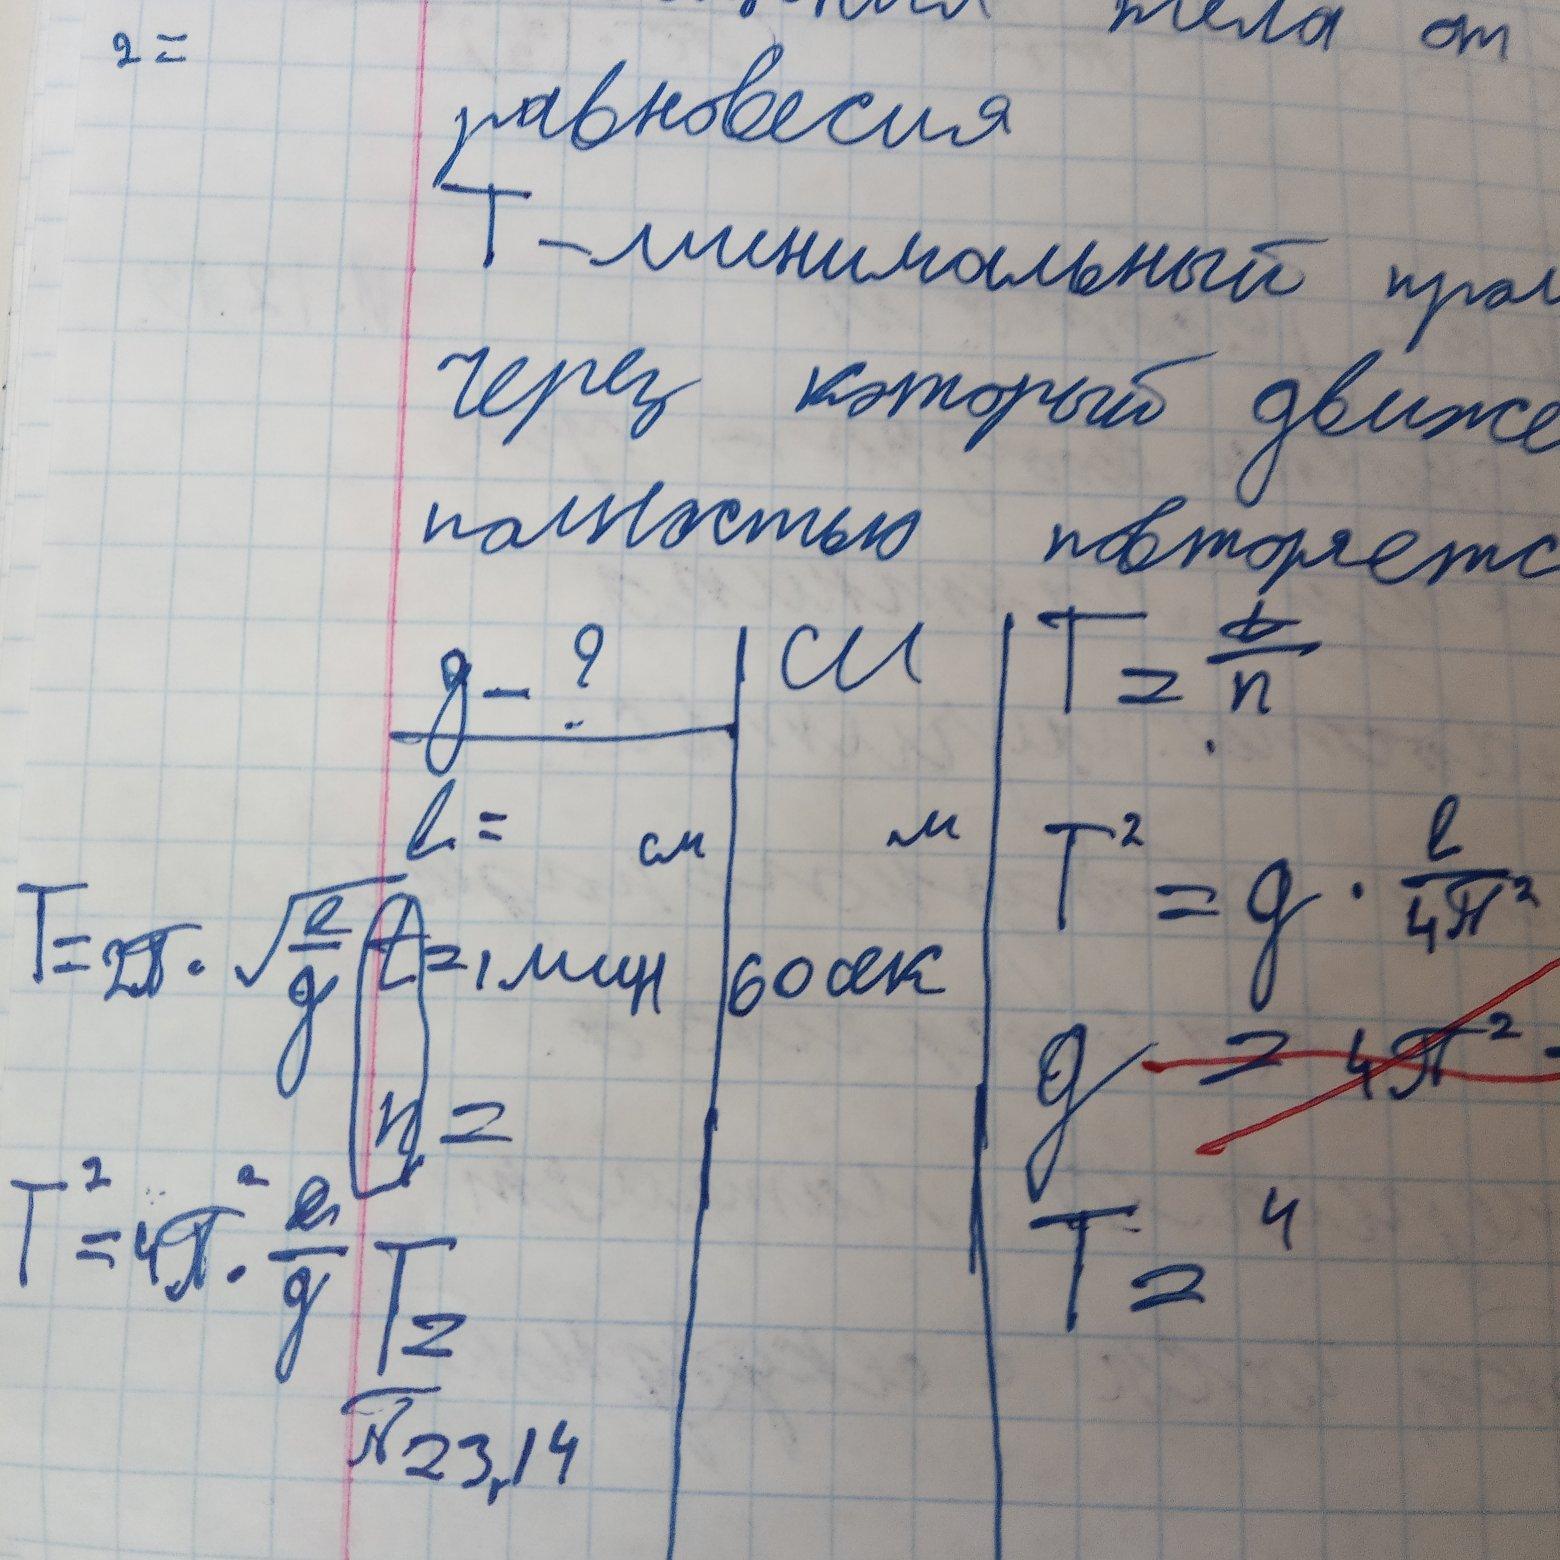 тела от
2=
равновесия
T – минимальный
через который движе
полностью повторяетс
g – ?
СИ
T = t/n
l = см
м
T² = g · l/4π²
T = 2π · √l/g
t = 1 мин
60 сек
g = 4π²
n =
T² = 4π² · l/g
T =
T = 4
π = 3,14